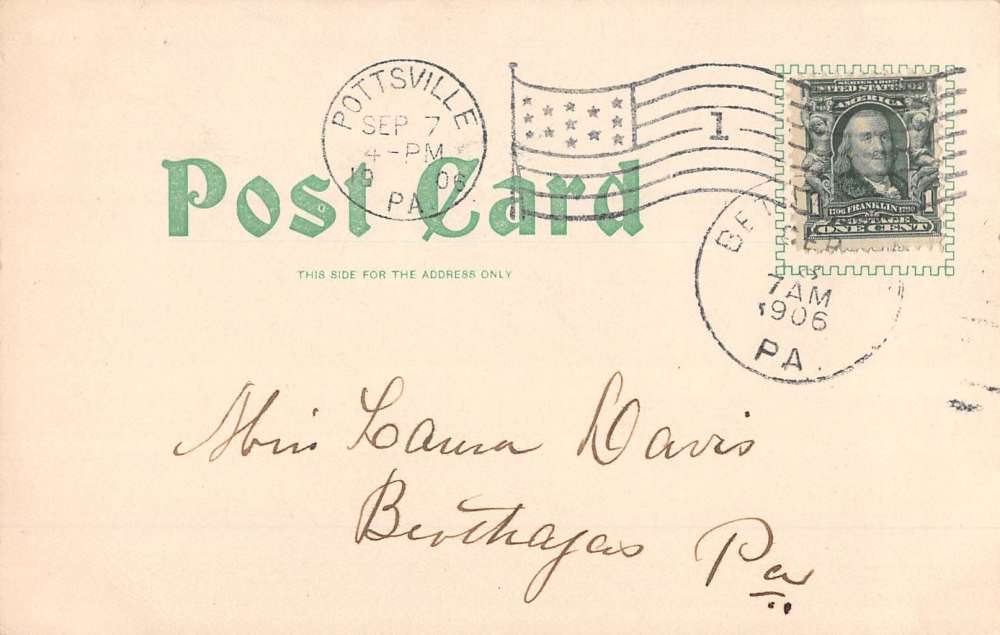 POTTSVILLE
SEP 7
4-PM
19 06
PA
1
SERIES 1902
UNITED STATES OF
AMERICA
1706 FRANKLIN 1790
1 POSTAGE 1
ONE CENT
Post Card
THIS SIDE FOR THE ADDRESS ONLY
7 AM
1906
PA.
Miss Laura Davis
Pa